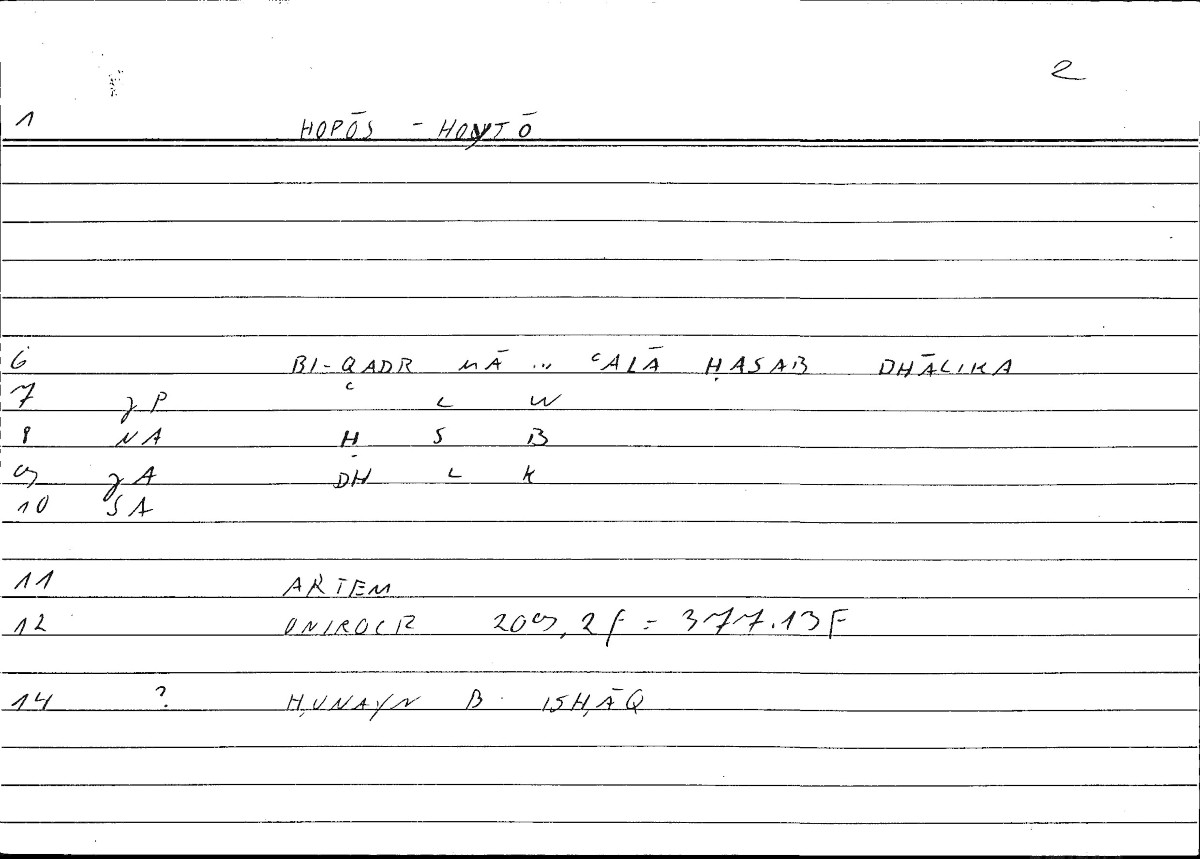 2
1 HOPŌS - HOYTŌ
6 BI-QADR MĀ ... ʿALĀ ḤASAB DHĀLIKA
7 γP ʿ L W
8 NA Ḥ S B
9 γA DH L K
10 SA
11 ARTEM
12 ONIROCR 209,2f = 377.13F
14 ? ḤUNAYN B. ISḤĀQ